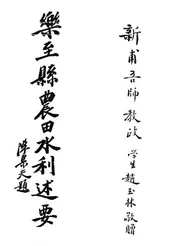 新甫吾師教政
學生趙玉林敬贈
樂至縣農田水利述要
陳景天題